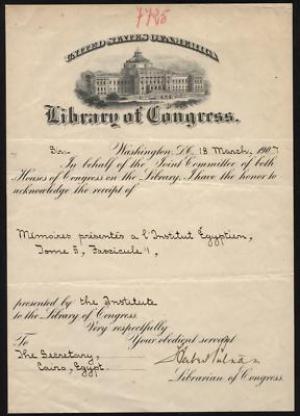 7725
UNITED STATES OF AMERICA
Library of Congress.
Washington, D.C. 18 March, 1907
In behalf of the Joint Committee of both
Houses of Congress on the Library, I have the honor to
acknowledge the receipt of
Mémoires présentés a l'Institut Égyptien,
Tome 5, Fascicule 1,
presented by the Institute
to the Library of Congress
Very respectfully
To Your obedient servant
The Secretary,
Cairo, Egypt.
Librarian of Congress.